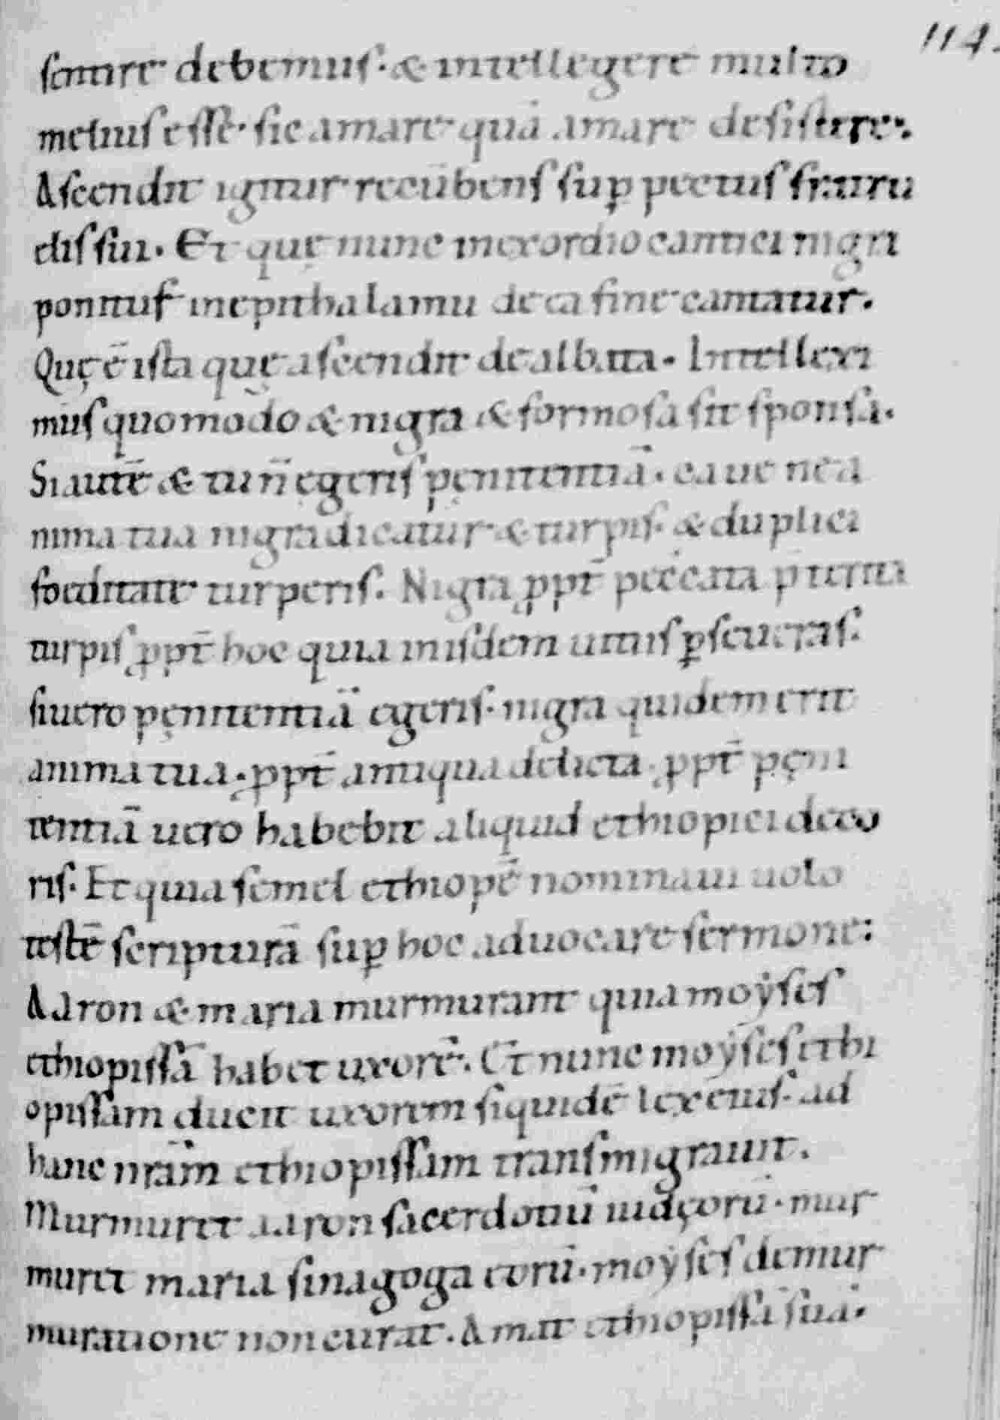 114.
sentire debemus· & intellegere multo
melius esse· sic amare quā amare desistere·.
Ascendit igitur recūbens sup̄ pectus fraru
elis sui. Et quę nunc in exordio cantici nigra
ponitur in epithalamii de ca fine cantatur.
Quę ē ista quę ascendit dealbata. Intellexi
mus quomodo & nigra & formosa sit sponsa.
Si autē & tu ñ egeris pęnitentiā. caue ne a
nima tua nigra dicatur & turpis· & duplici
foeditate turperis. Nigra ꝓpt̄ peccata p̄terita
turpis ꝓpt̄ hoc quia in isdem uitiis ꝑseueras.
si uero pęnitentiā egeris· nigra quidem erit
anima tua· ꝓpt̄ antiqua delicta· ꝓpt̄ pęni
tentiā uero habebit aliquid ethiopici deco
ris. Et quia semel ethiopē nominaui uolo
testē scripturā sup̄ hoc aduocare sermone:
Aaron & maria murmurant quia moẏses
ethiopissā habet uxorē. Et nunc moẏses ethi
opissam ducit uxorem siquidē lex eius· ad
hanc nrā̄m ethiopissam transmigrauit.
Murmuret aaron sacerdotiū iudęorū· mur
muret maria sinagoga eorū· moẏses de mur
muratione non curat. Amat ethiopissā suā.